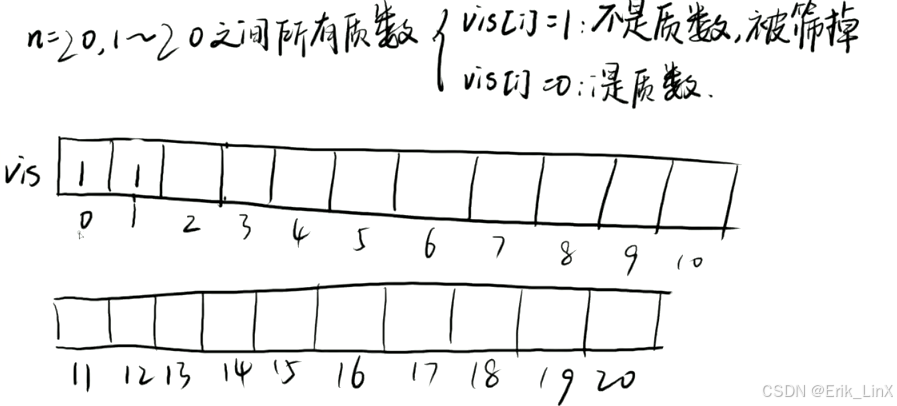 n=20,1~20之间所有质数
vis[i]=1:不是质数,被筛掉
vis[i]=0:是质数.
vis 1 1
0 1 2 3 4 5 6 7 8 9 10
11 12 13 14 15 16 17 18 19 20
CSDN @Erik_LinX